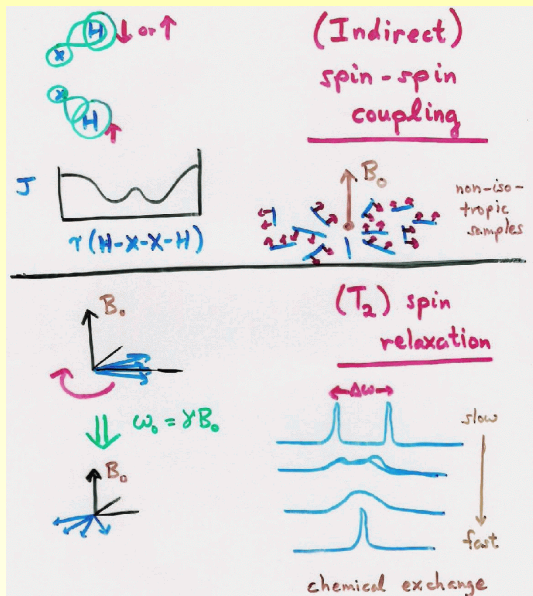 H ↓ or ↑
X
X
H
↑
(Indirect)
spin-spin
coupling
J
τ(H-X-X-H)
B₀
non-iso-
tropic
samples
B₀
ω₀ = γB₀
B₀
(T₂) spin
relaxation
Δω
slow
fast
chemical exchange